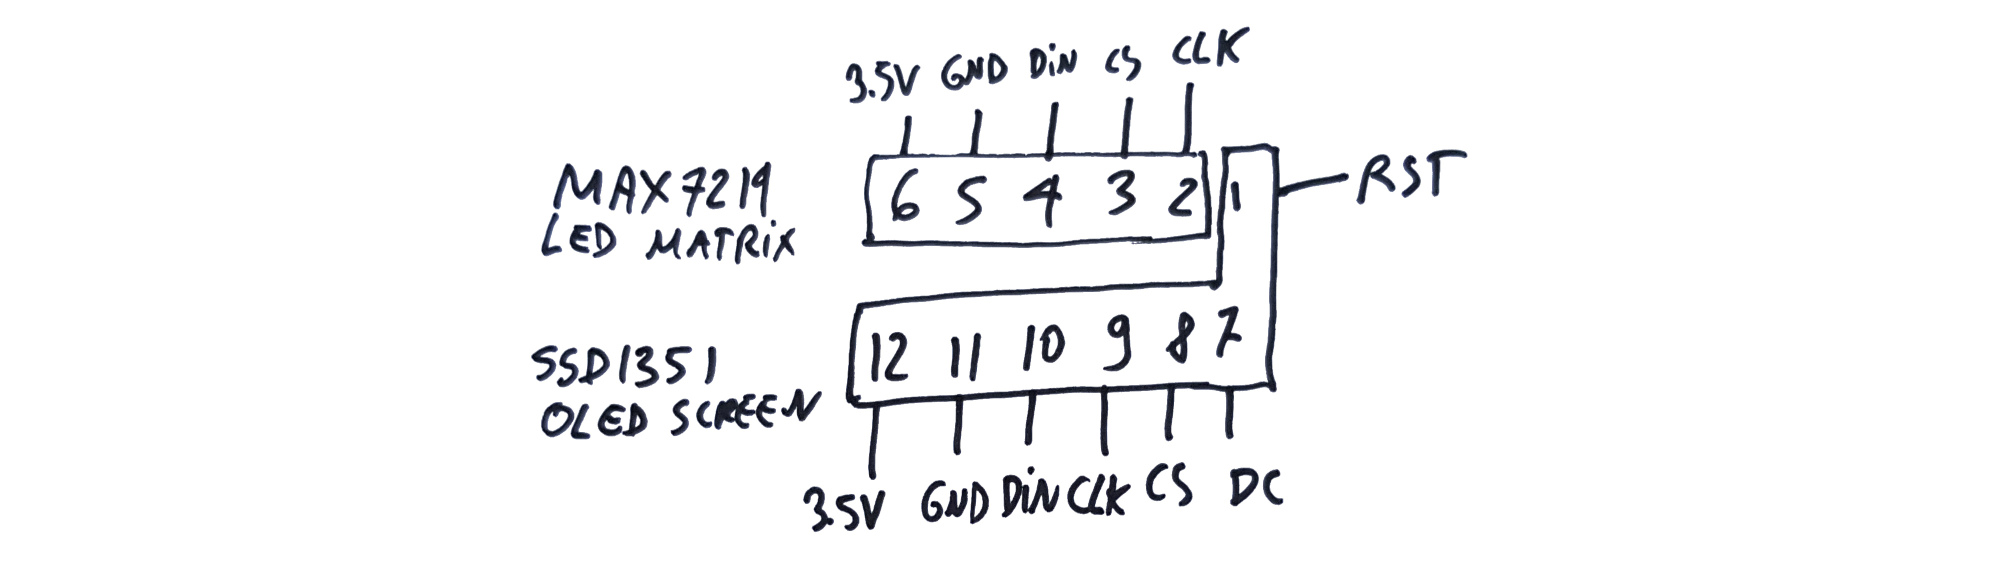 3.5V GND DiN CS CLK
MAX7219
LED MATRiX
6 5 4 3 2 1
RST
SSD1351
OLED SCREEN
12 11 10 9 8 7
3.5V GND DiN CLK CS DC